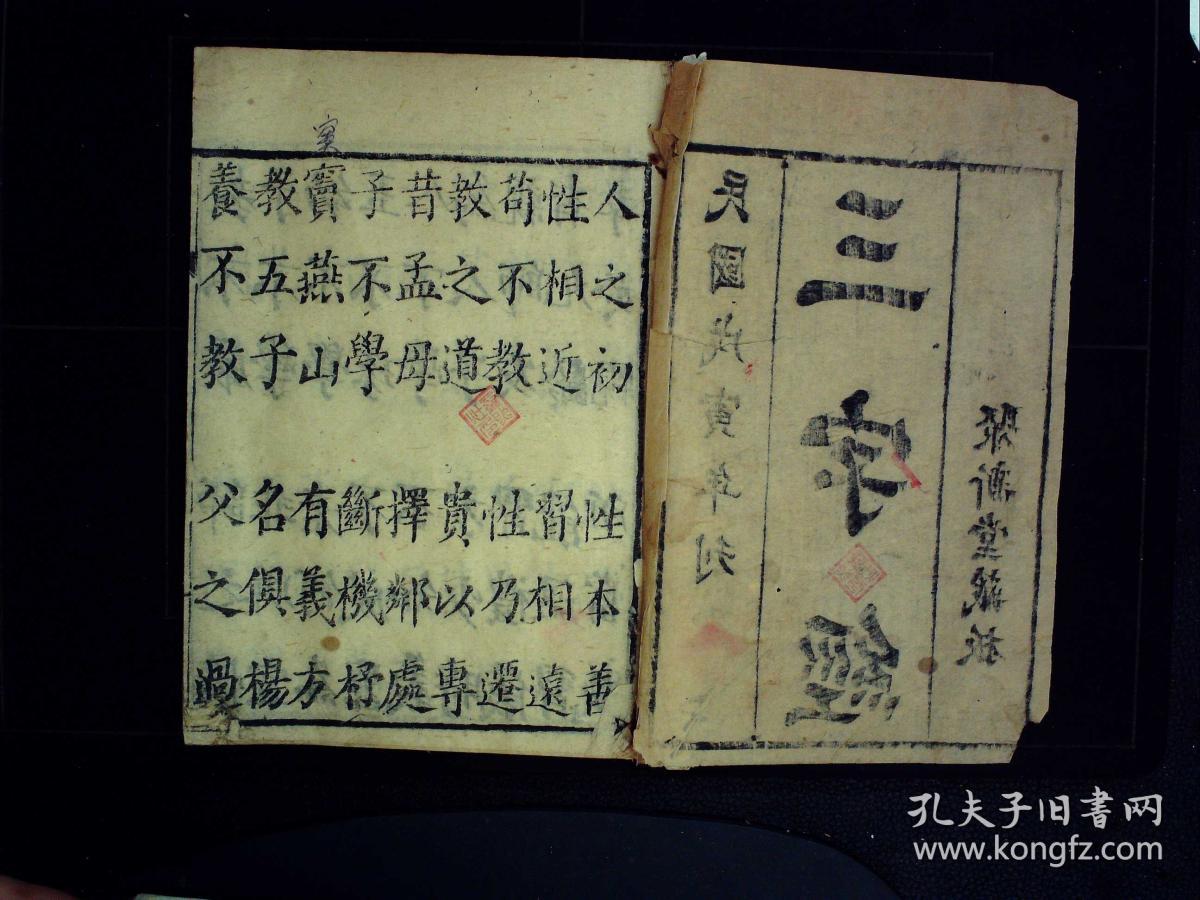 堂藏板
三字經
民國戊寅年刊
人之初 性本善
性相近 習相遠
苟不教 性乃遷
教之道 貴以專
昔孟母 擇鄰處
子不學 斷機杼
竇燕山 有義方
教五子 名俱楊
養不教 父之過
孔夫子旧书网
www.kongfz.com